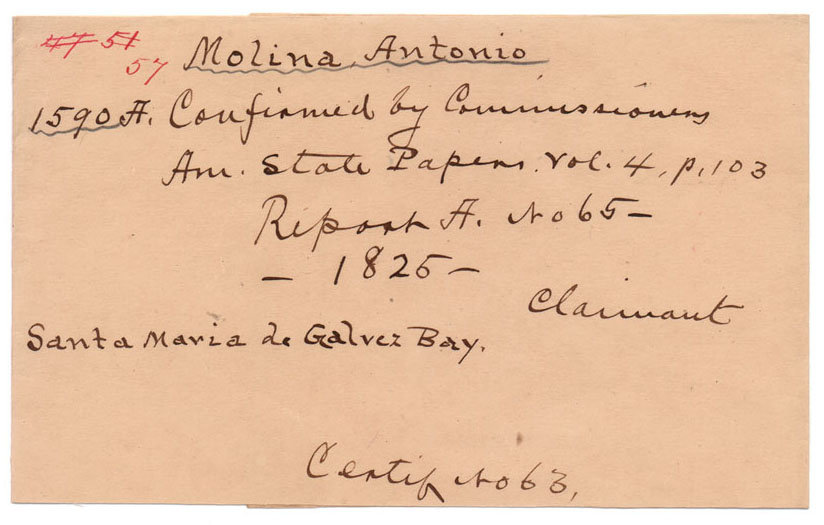 47 51
57 Molina Antonio
1590 A. Confirmed by Commissioners
Am. State Papers. Vol. 4, p. 103
Report A. No 65 –
– 1825 –
Claimant
Santa Maria de Galvez Bay.
Certif No 63,